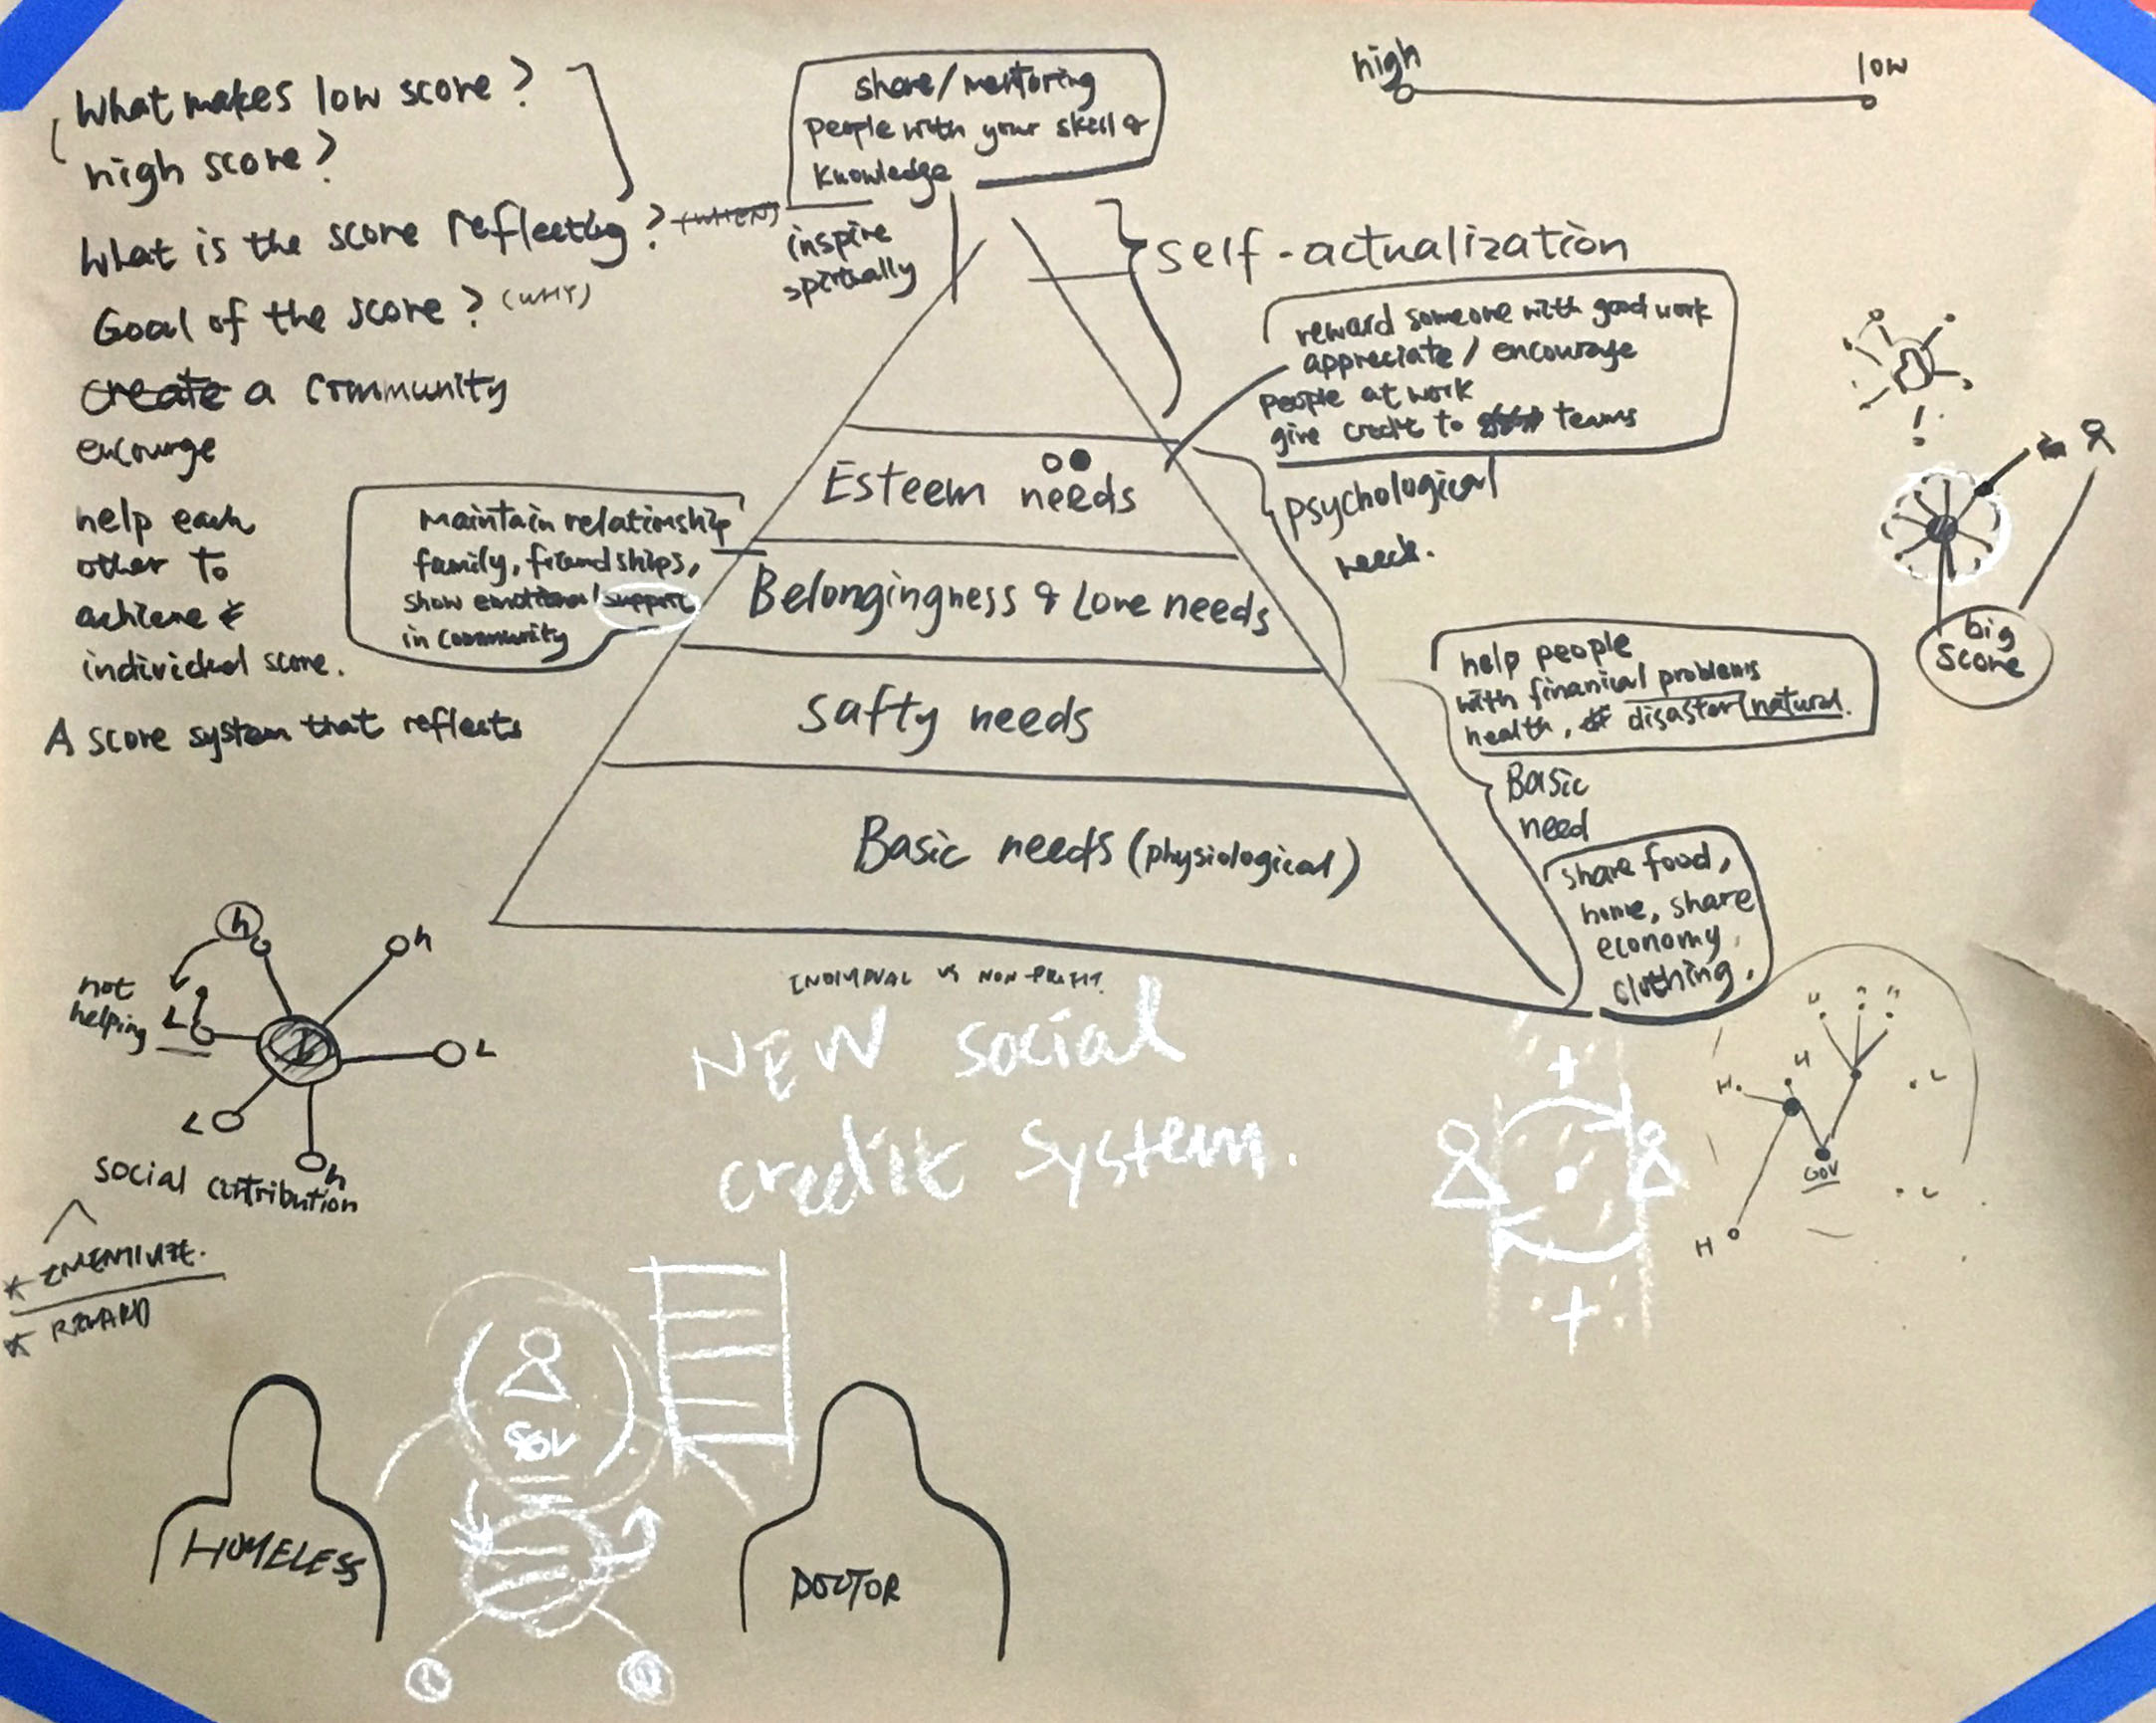 What makes low score?
high score?
What is the score reflecting? (WHEN)
Goal of the score? (WHY)
create a community
encourge
help each
other to
achieve
individual score.
A score system that reflects
share/mentoring
people with your skill &
knowledge
inspire
spirtually
high
low
self-actualization
reward someone with good work
appreciate / encourage
people at work
give credit to teams
Esteem needs
psychological
need.
Maintain relationship
family, friendships,
show emotional support
in community
Belongingness & Love needs
big
score
help people
with finanical problems
health, disaster natural.
safty needs
Basic
need
Basic needs (physiological)
share food,
home, share
economy,
clothing.
h
h
not
helping
L
L
L
h
social contribution
* REWARD
VS NON PROFIT.
NEW social
credit system.
+
+
H
H
L
GOV
L
H
GOV
HOMELESS
DOCTOR
L